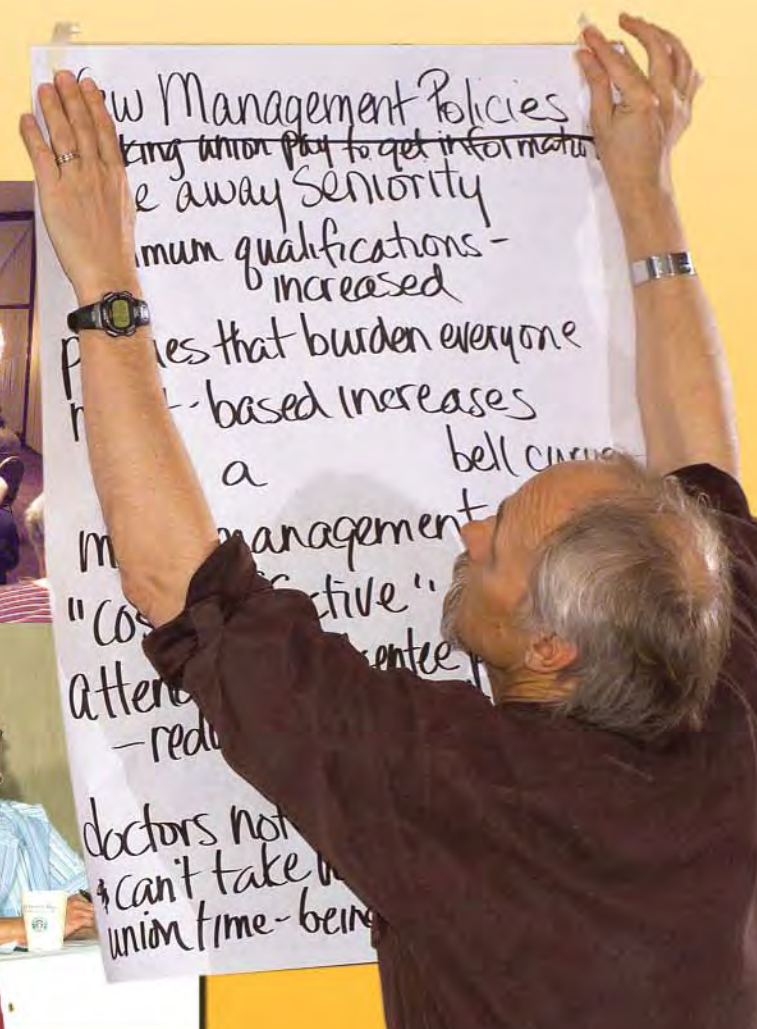 w Management Policies
king union pay to get informatio
e away Seniority
imum qualifications-
increased
p ies that burden everyone
-based increases
a bell curve
m management
"cos ctive"
atten entee p
-redu
doctors not
can't take
union time-being